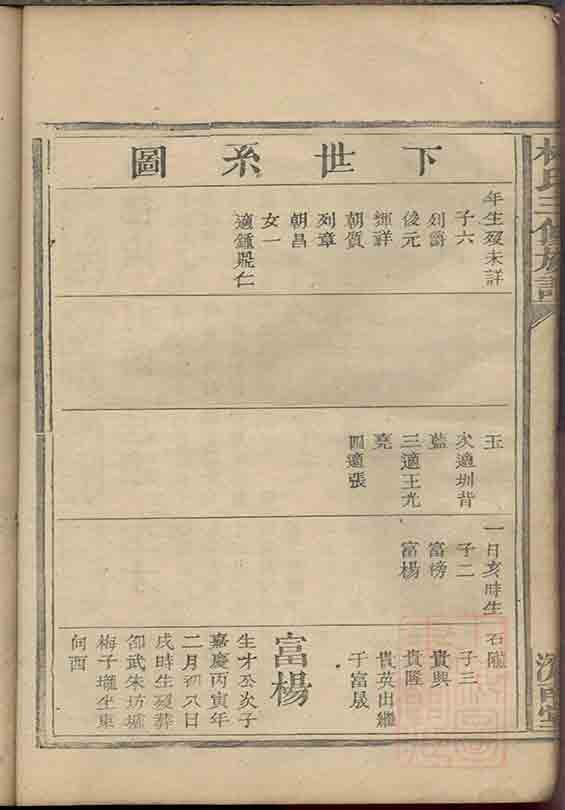 下世系圖
年生歿未詳
子六
列爵
俊元
輝祥
朝質
列章
朝昌
女一
適鍾
仁
玉
次適圳背
藍
三適王光
亮
四適張
一日亥時生
子二
富榜
富楊
石隴
子三
貴興
貴隆
貴英出繼
于富晟
富楊
生才公次子
嘉慶丙寅年
二月初八日
戌時生歿葬
邵武朱坊壚
梅子壠坐東
向酉
氏三修族譜